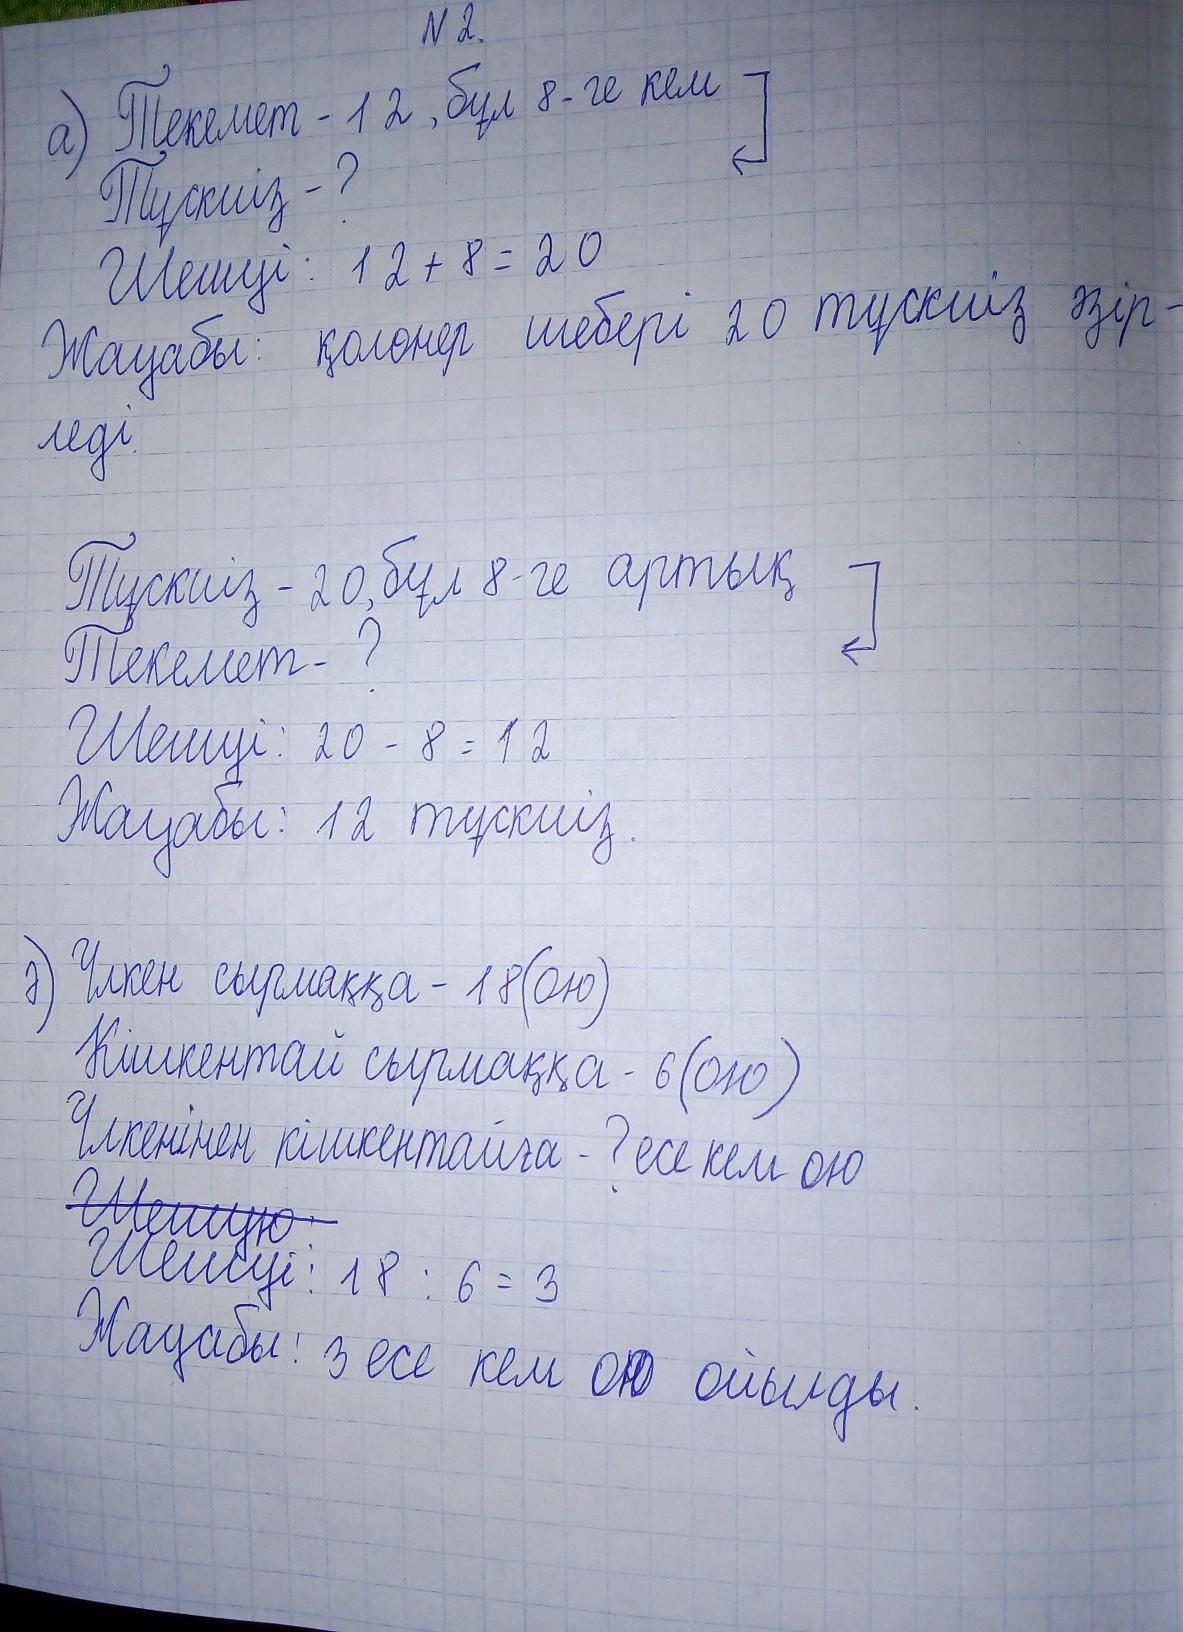 N 2.
а) Текемет - 12, бұл 8-ге кем
Тұскиіз - ?
Шешуі: 12 + 8 = 20
Жауабы: қолөнер шебері 20 тұскиіз әзір-
леді.
Тұскиіз - 20, бұл 8-ге артық
Текемет - ?
Шешуі: 20 - 8 = 12
Жауабы: 12 тұскиіз.
ә) Үлкен сырмаққа - 18 (ою)
Кішкентай сырмаққа - 6 (ою)
Үлкенінен кішкентайға - ? есе кем ою
Шешую:
Шешуі: 18 : 6 = 3
Жауабы: 3 есе кем ою ойылды.